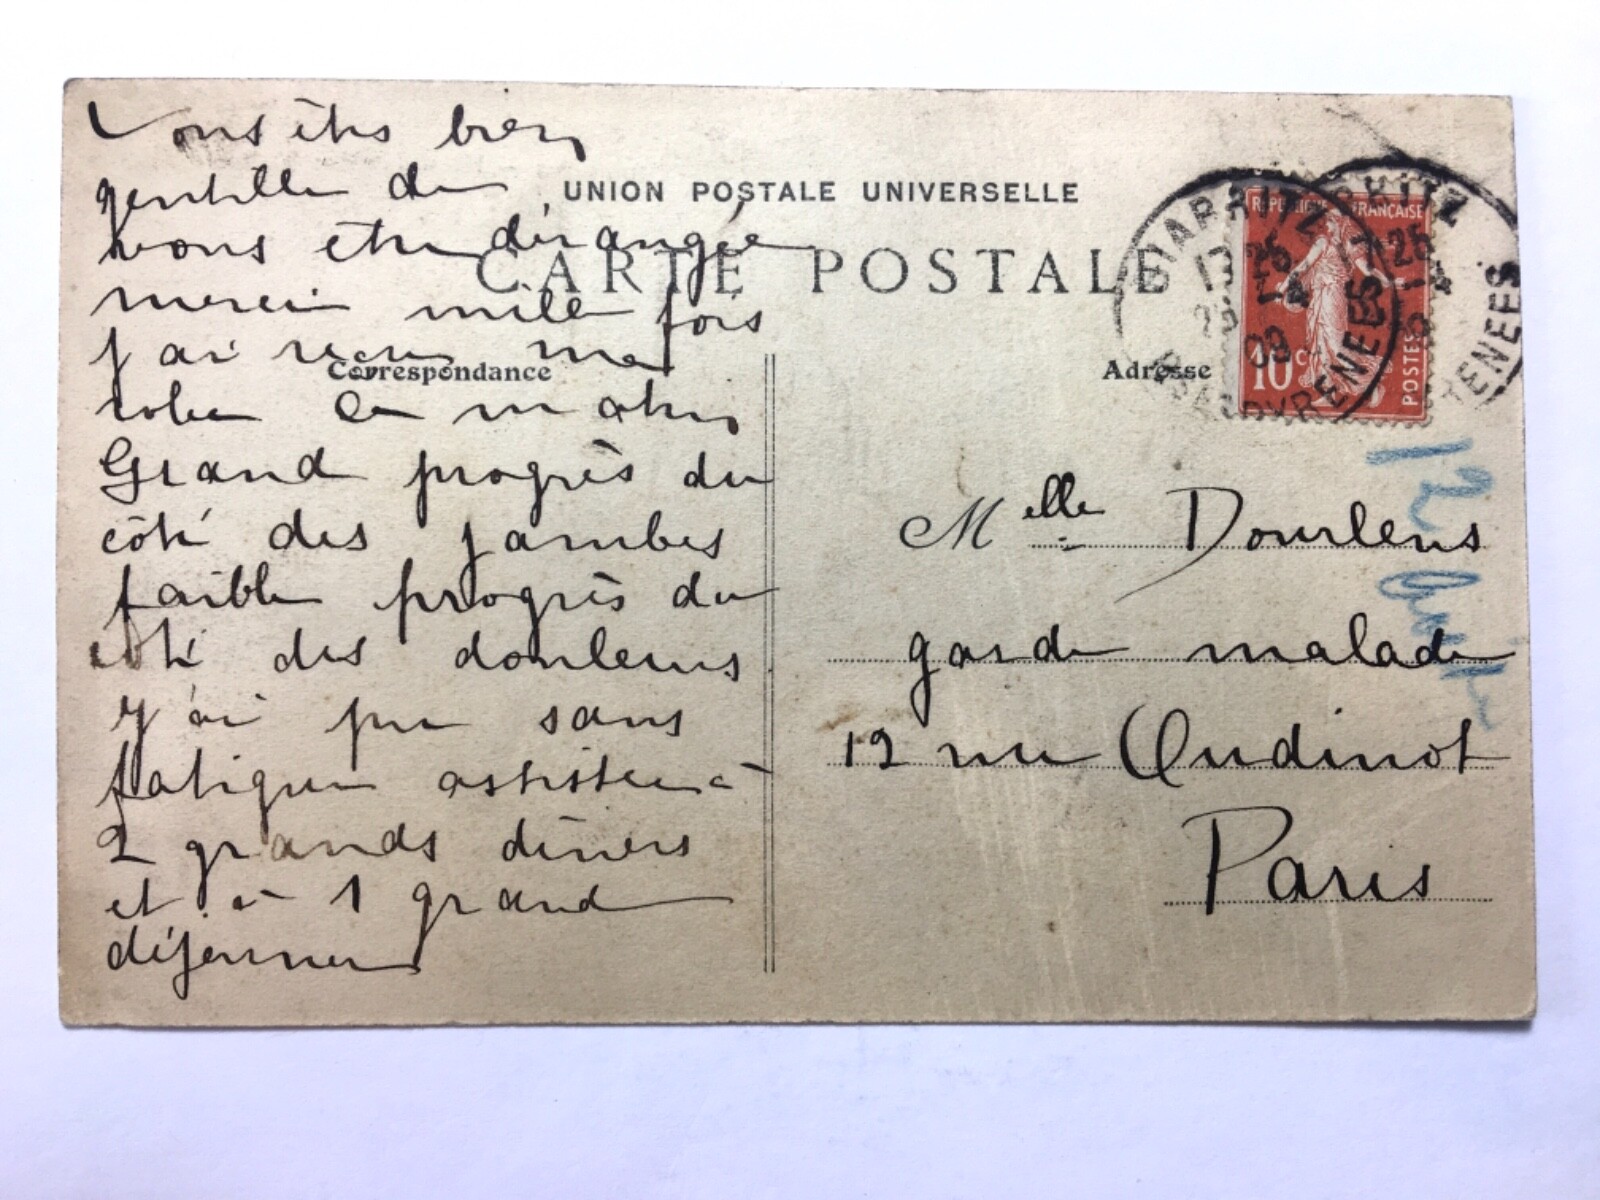 Vous êtes bien
gentille de
vous être dérangée
merci mille fois
j'ai reçu ma
robe ce matin
Grand progrès du
côté des jambes
faible progrès du
côté des douleurs
j'ai pu sans
fatigue assister à
2 grands dîners
et à 1 grand
déjeuner
UNION POSTALE UNIVERSELLE
CARTE POSTALE
Correspondance
Adresse
REPUBLIQUE FRANÇAISE
10c
POSTES
BIARRITZ
25
09
PYRENEES
Melle Dourlens
garde malade
12 rue Oudinot
Paris
12